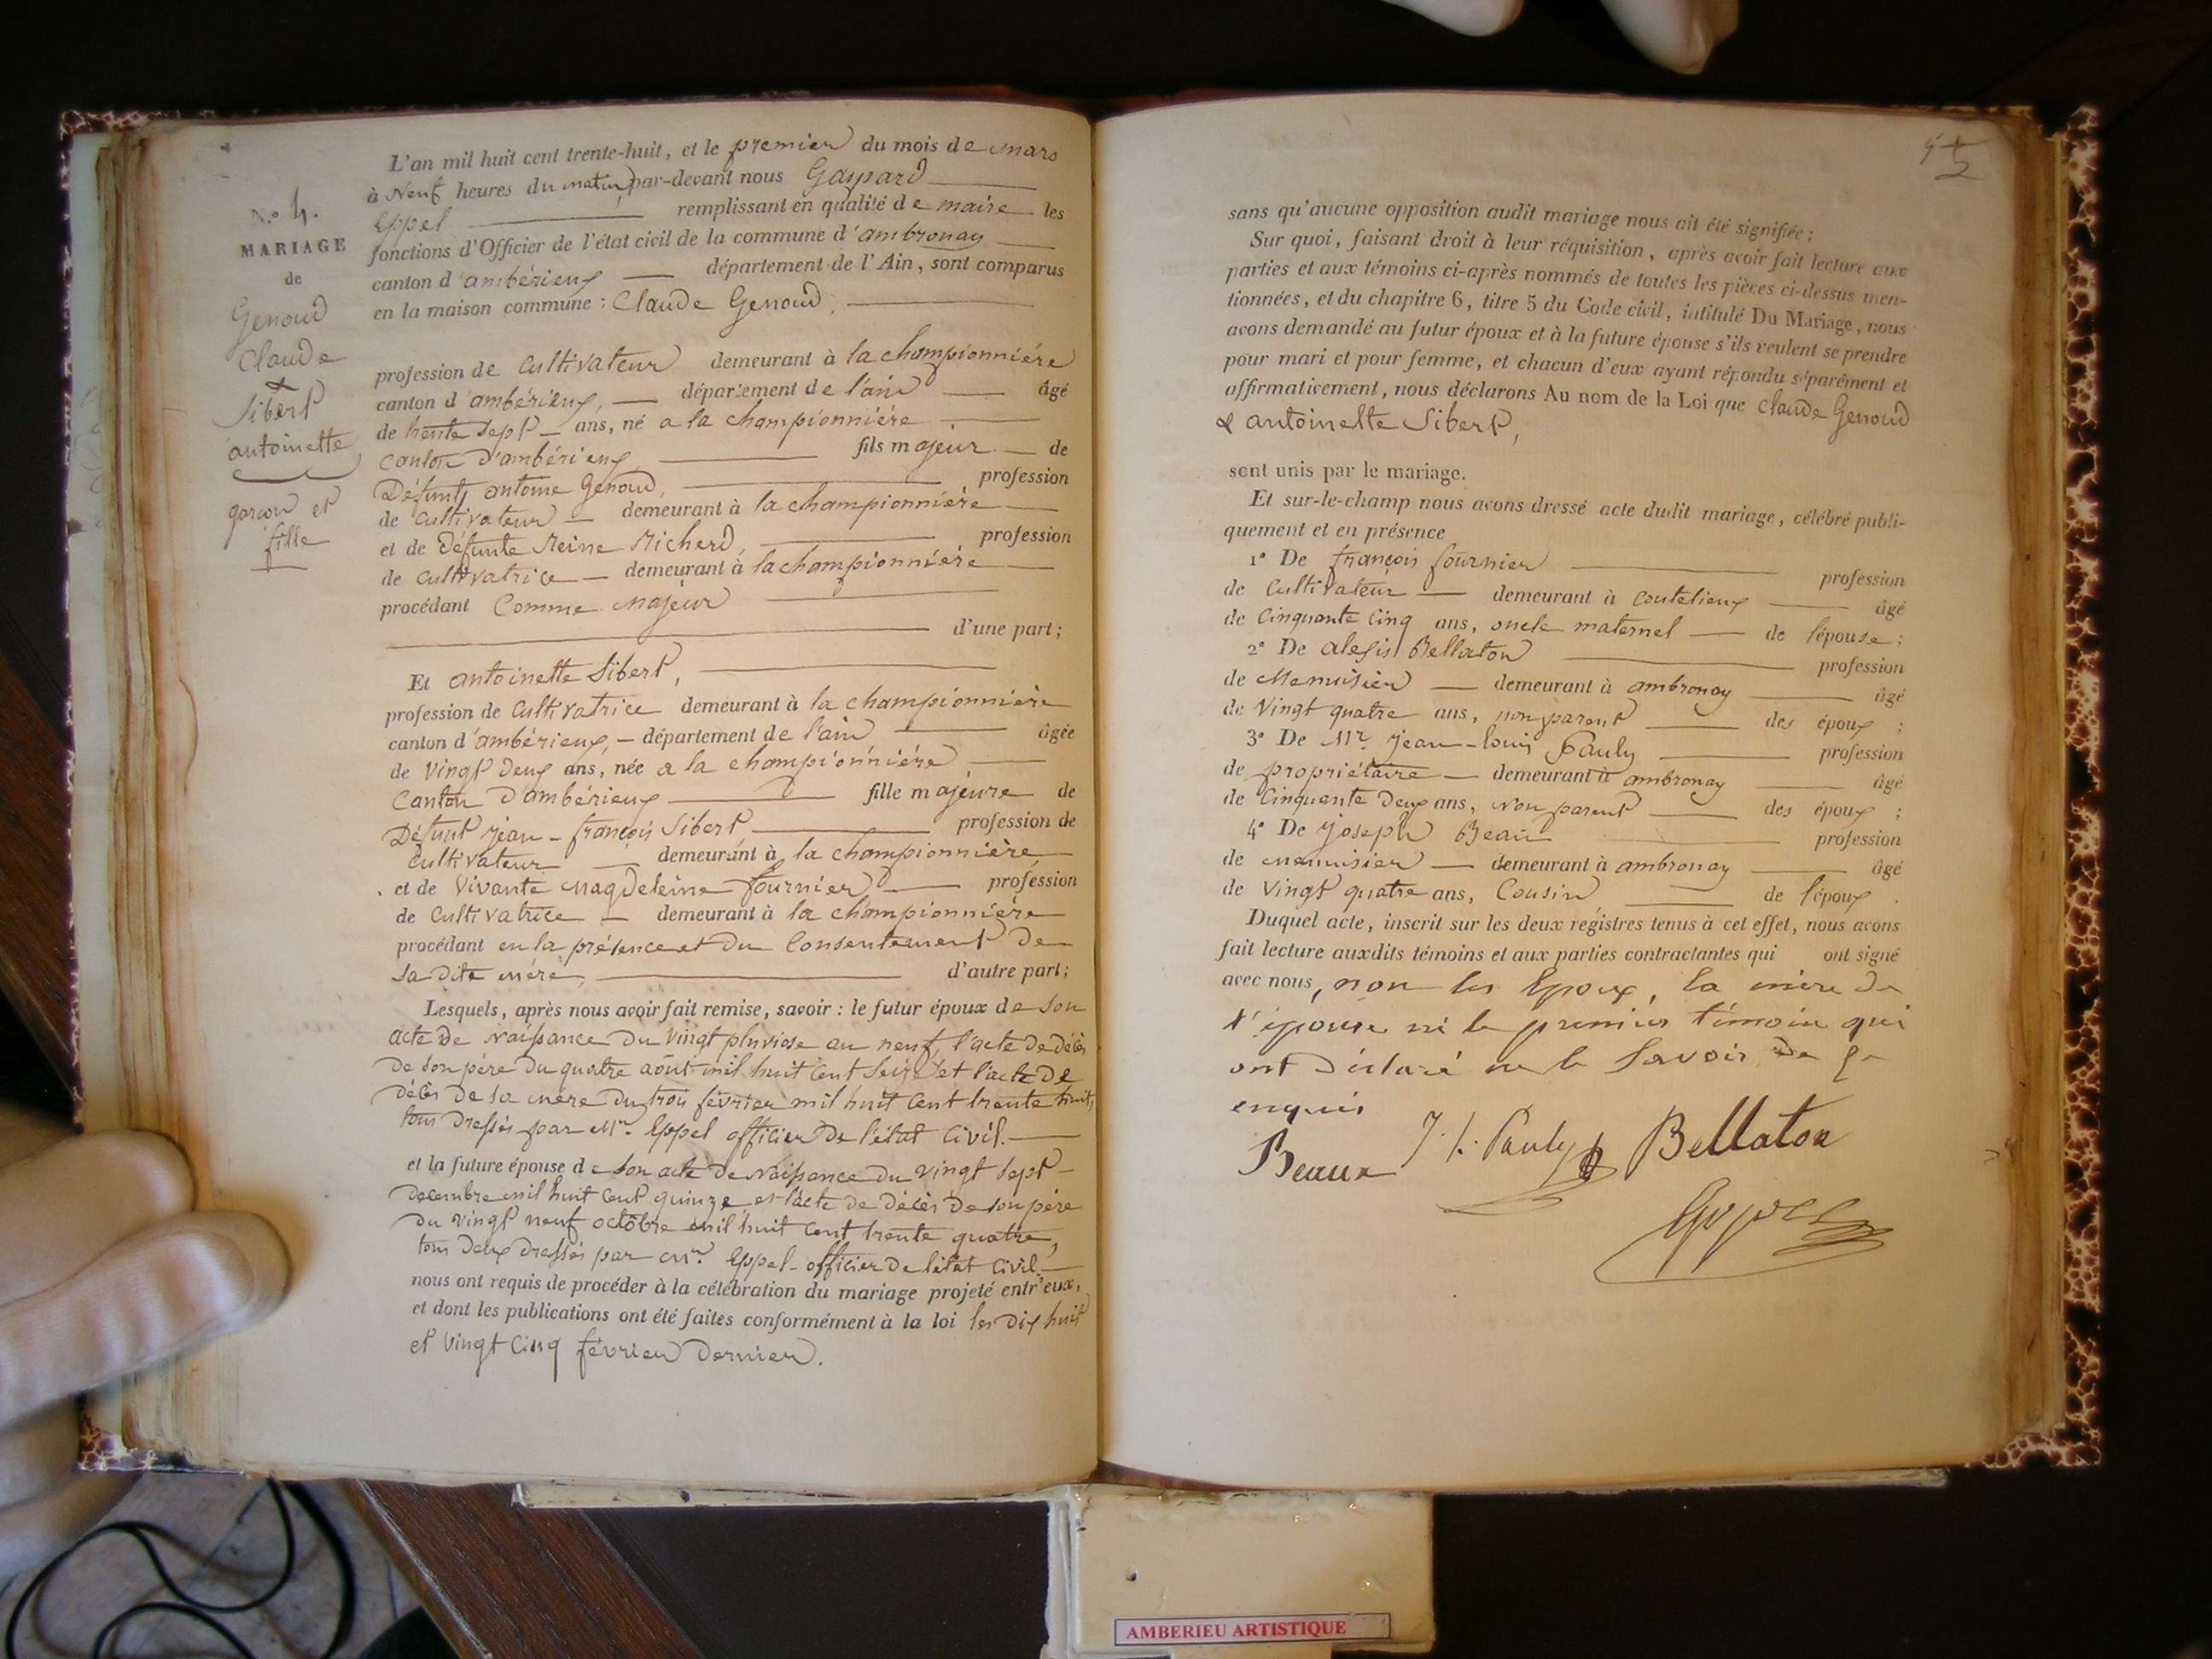 N.o 4.
MARIAGE
de
Genoud
Claude
&
Sibert
antoinette
garçon et
fille
L'an mil huit cent trente-huit, et le premier du mois de mars
à Neuf heures du matin, par-devant nous Gaspard
Eppel remplissant en qualité de maire les
fonctions d'Officier de l'état civil de la commune d'ambronay
canton d'ambérieux département de l'Ain, sont comparus
en la maison commune : Claude Genoud,
profession de Cultivateur demeurant à la championnière
canton d'ambérieux, département de l'ain âgé
de trente sept ans, né a la championnière
Canton d'ambérieux fils majeur de
Défunt antoine Genoud, profession
de Cultivateur demeurant à la championnière
et de Défunte Reine Richerd, profession
de Cultivatrice demeurant à la championnière
procédant Comme Majeur
d'une part;
Et antoinette Sibert,
profession de Cultivatrice demeurant à la championnière
canton d'ambérieux, département de l'ain âgée
de Vingt Deux ans, née a la championnière
Canton D'ambérieux fille majeure de
Défunt Jean-françois Sibert profession de
Cultivateur demeurant à la championnière
et de Vivante Magdeleine fournier profession
de Cultivatrice demeurant à la championnière
procédant en la présence et du Consentement de
sa dite mère, d'autre part;
Lesquels, après nous avoir fait remise, savoir : le futur époux de son
acte de naissance du Vingt pluviose an neuf, l'acte de décès
de son père du quatre août mil huit cent seize et l'acte de
décès de sa mère du trois février mil huit cent trente huit,
tous dressés par Mr. Eppel officier de l'état civil.
et la future épouse de son acte de naissance du vingt sept
decembre mil huit cent quinze et l'acte de décès de son père
du vingt neuf octobre mil huit cent trente quatre,
tous deux dressés par Mr. Eppel officier de l'état civil
nous ont requis de procéder à la célébration du mariage projeté entr'eux,
et dont les publications ont été faites conformément à la loi les dix huit
et vingt cinq février dernier.
sans qu'aucune opposition audit mariage nous ait été signifiée;
Sur quoi, faisant droit à leur réquisition, après avoir fait lecture aux
parties et aux témoins ci-après nommés de toutes les pièces ci-dessus men-
tionnées, et du chapitre 6, titre 5 du Code civil, intitulé Du Mariage, nous
avons demandé au futur époux et à la future épouse s'ils veulent se prendre
pour mari et pour femme, et chacun d'eux ayant répondu séparément et
affirmativement, nous déclarons Au nom de la Loi que Claude Genoud
& antoinette Sibert,
sont unis par le mariage.
Et sur-le-champ nous avons dressé acte dudit mariage, célébré publi-
quement et en présence
1° De françois fournier profession
de Cultivateur demeurant à coutelieux âgé
de Cinquante Cinq ans, oncle maternel de l'épouse;
2° De alexis Bellaton profession
de Menuisier demeurant à ambronay âgé
de Vingt quatre ans, non parent des époux ;
3° De Mr. Jean-louis Pauly profession
de propriétaire demeurant à ambronay âgé
de Cinquante Deux ans, Non parent des époux ;
4° De Joseph Beau profession
de menuisier demeurant à ambronay âgé
de Vingt quatre ans, Cousin de l'époux .
Duquel acte, inscrit sur les deux registres tenus à cet effet, nous avons
fait lecture auxdits témoins et aux parties contractantes qui ont signé
avec nous, non les Epoux, la mère de
l'épouse ni le premier témoin qui
ont déclaré ne le savoir de ce
enquis
Beaux J. l. Pauly Bellaton
Eppel
AMBERIEU ARTISTIQUE